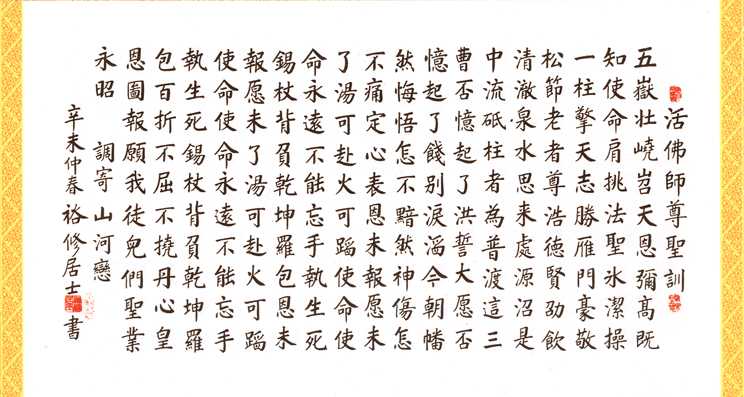 活佛師尊聖訓
五嶽壯嶢岧天恩彌高既
知使命肩挑法聖氷潔操
一柱擎天志勝雁門豪敬
松節老者尊浩德賢劭飲
清澈泉水思来處源沼是
中流砥柱者為普渡這三
曹否憶起了洪誓大愿否
憶起了餞别淚濕今朝幡
然悔悟怎不黯然神傷怎
不痛定心表恩未報愿未
了湯可赴火可蹈使命使
命永遠不能忘手執生死
錫杖背負乾坤羅包恩未
報愿未了湯可赴火可蹈
使命使命永遠不能忘手
執生死錫杖背負乾坤羅
包百折不屈不撓丹心皇
恩圖報願我徒兒們聖業
永昭 調寄 山河戀
辛未仲春 裕修居士 書